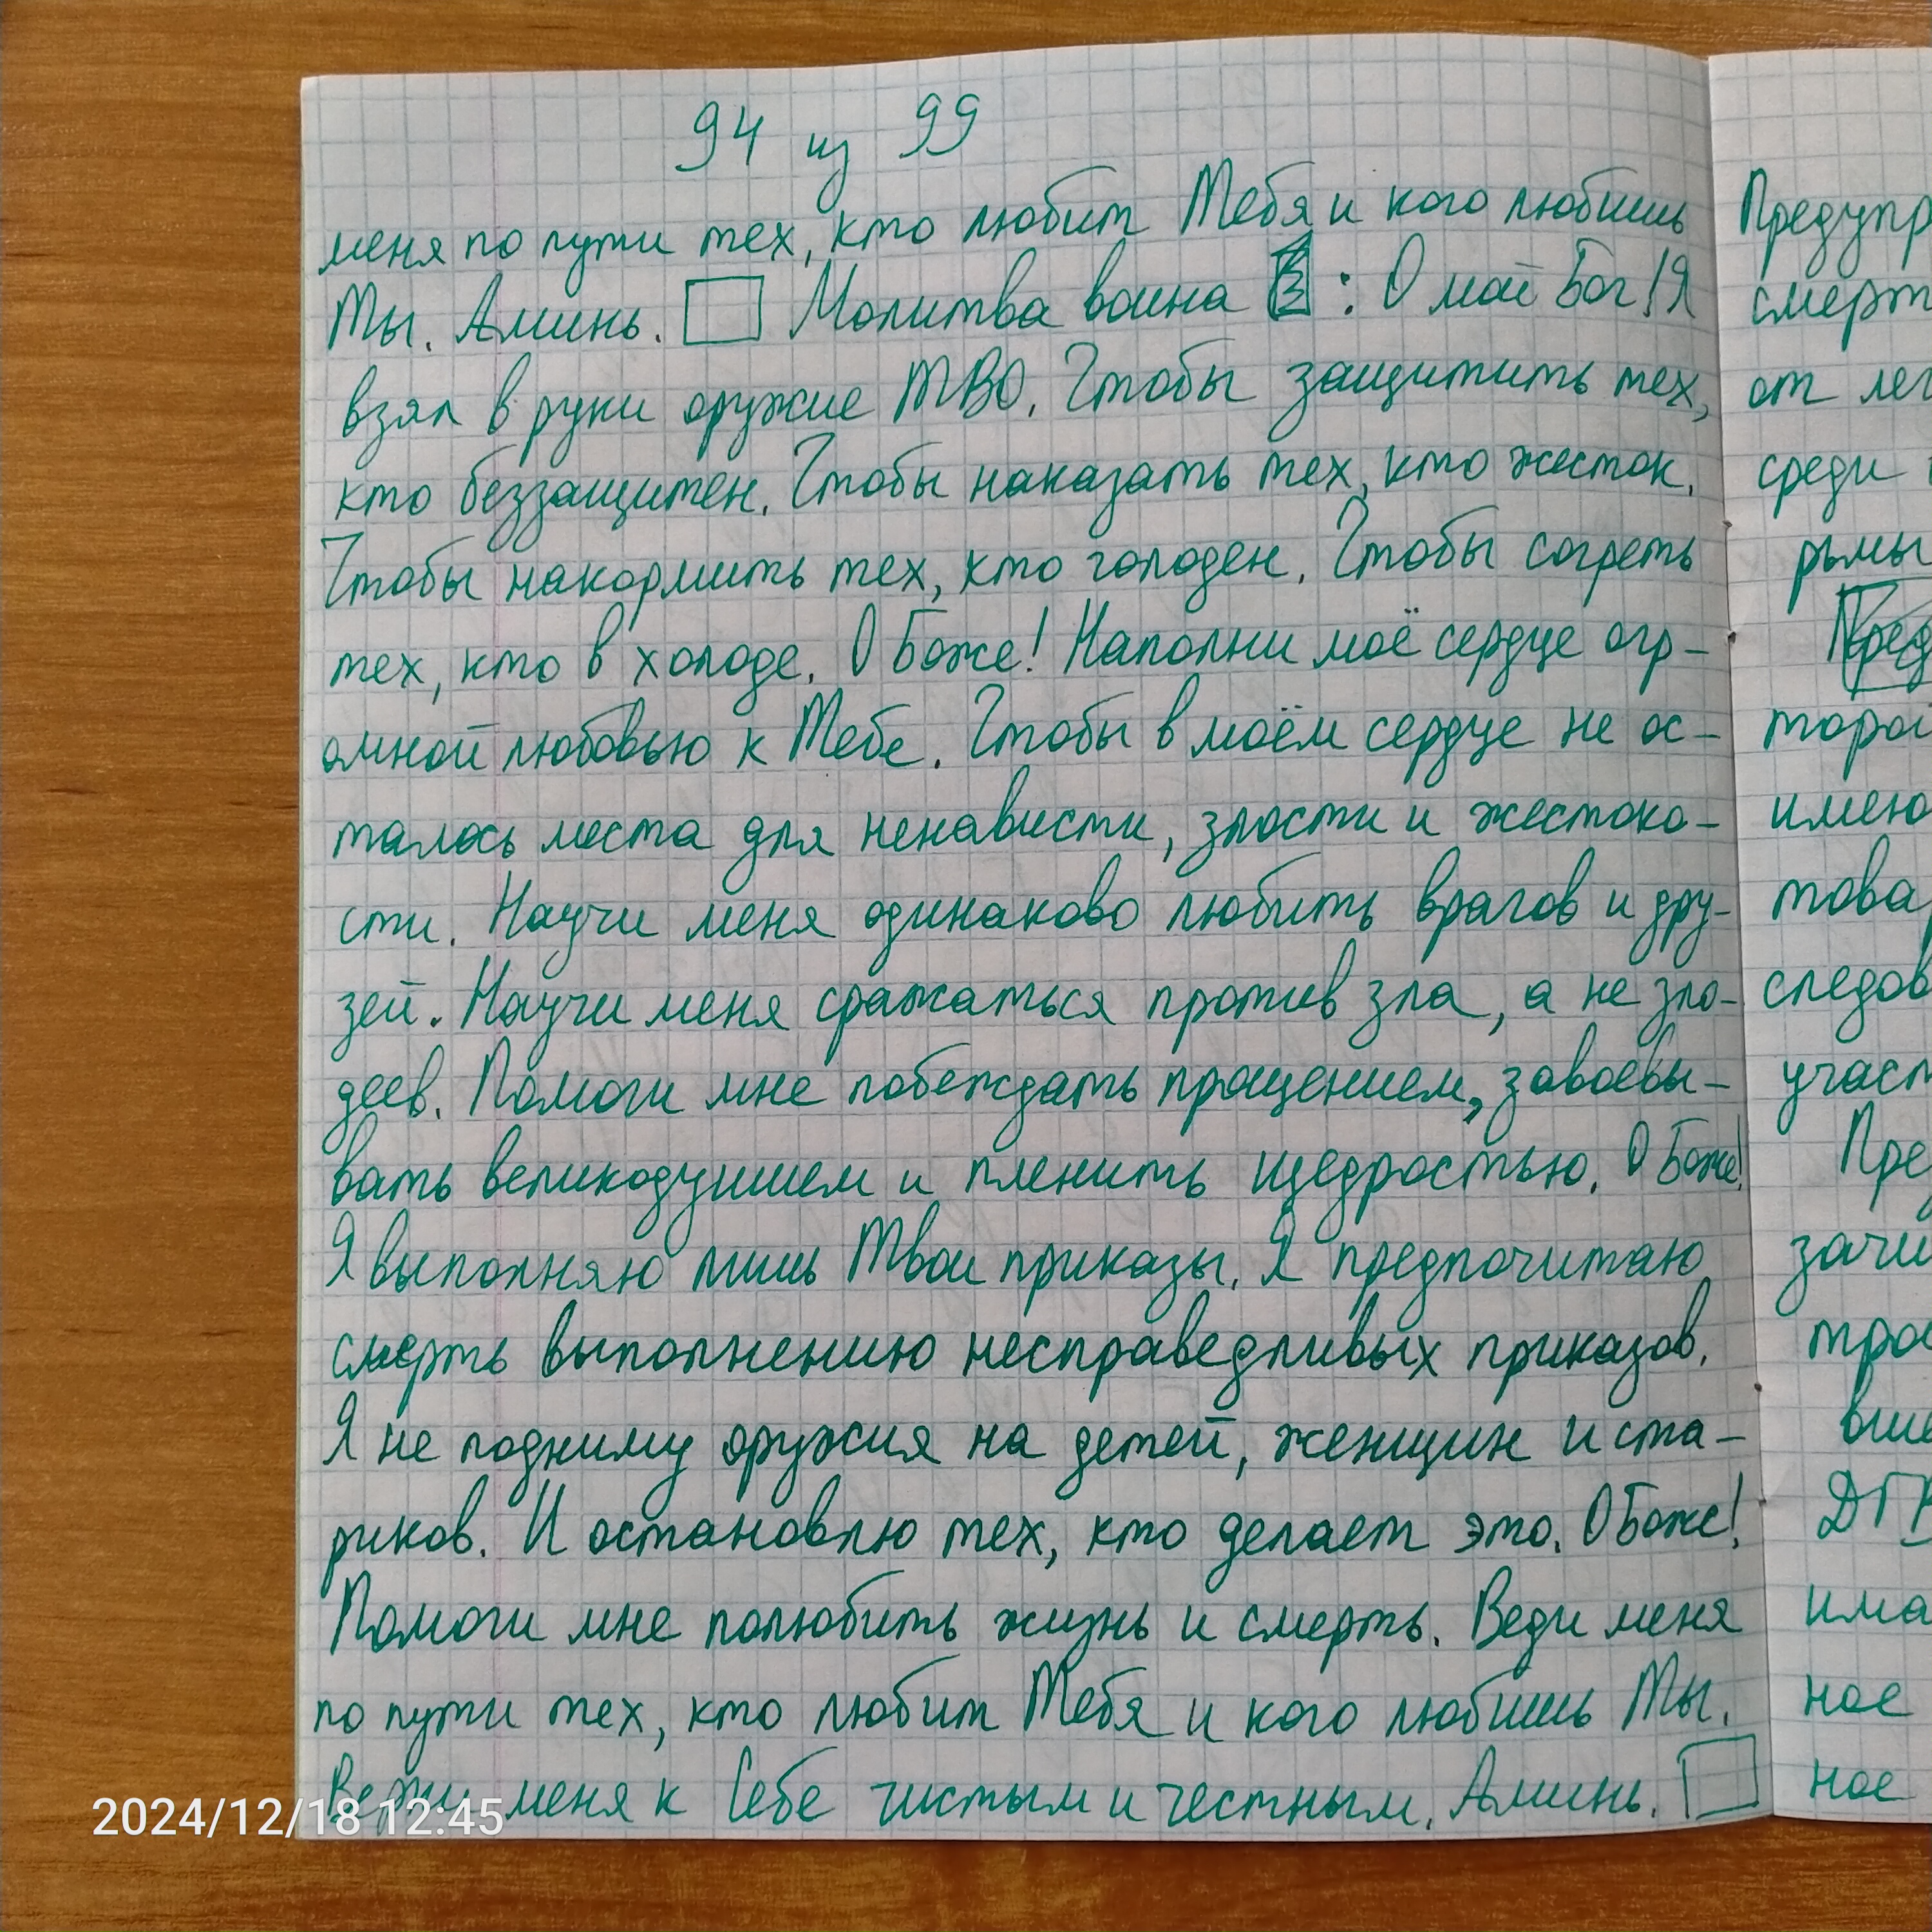 94 из 99
меня по пути тех, кто любит Тебя и кого любишь
Ты. Аминь. Молитва воина : О мой Бог! Я
взял в руки оружие ТВО. Чтобы защитить тех,
кто беззащитен. Чтобы наказать тех, кто жесток.
Чтобы накормить тех, кто голоден. Чтобы согреть
тех, кто в холоде. О Боже! Наполни моё сердце огр-
омной любовью к Тебе. Чтобы в моём сердце не ос-
талось места для ненависти, злости и жестоко-
сти. Научи меня одинаково любить врагов и дру-
зей. Научи меня сражаться против зла, а не зло-
деев. Помоги мне побеждать прощением, завоевы-
вать великодушием и пленить щедростью. О Боже!
Я выполняю лишь Твои приказы. Я предпочитаю
смерть выполнению несправедливых приказов.
Я не подниму оружия на детей, женщин и ста-
риков. И остановлю тех, кто делает это. О Боже!
Помоги мне полюбить жизнь и смерть. Веди меня
по пути тех, кто любит Тебя и кого любишь Ты.
меня к Себе чистым и честным. Аминь.
2024/12/18 12:45
Предупр
смерт
от лег
среди
рьмы
торог
имею
това
следов
участ
Пре
зачи
трос
вше
ДГР
има
ное
ное